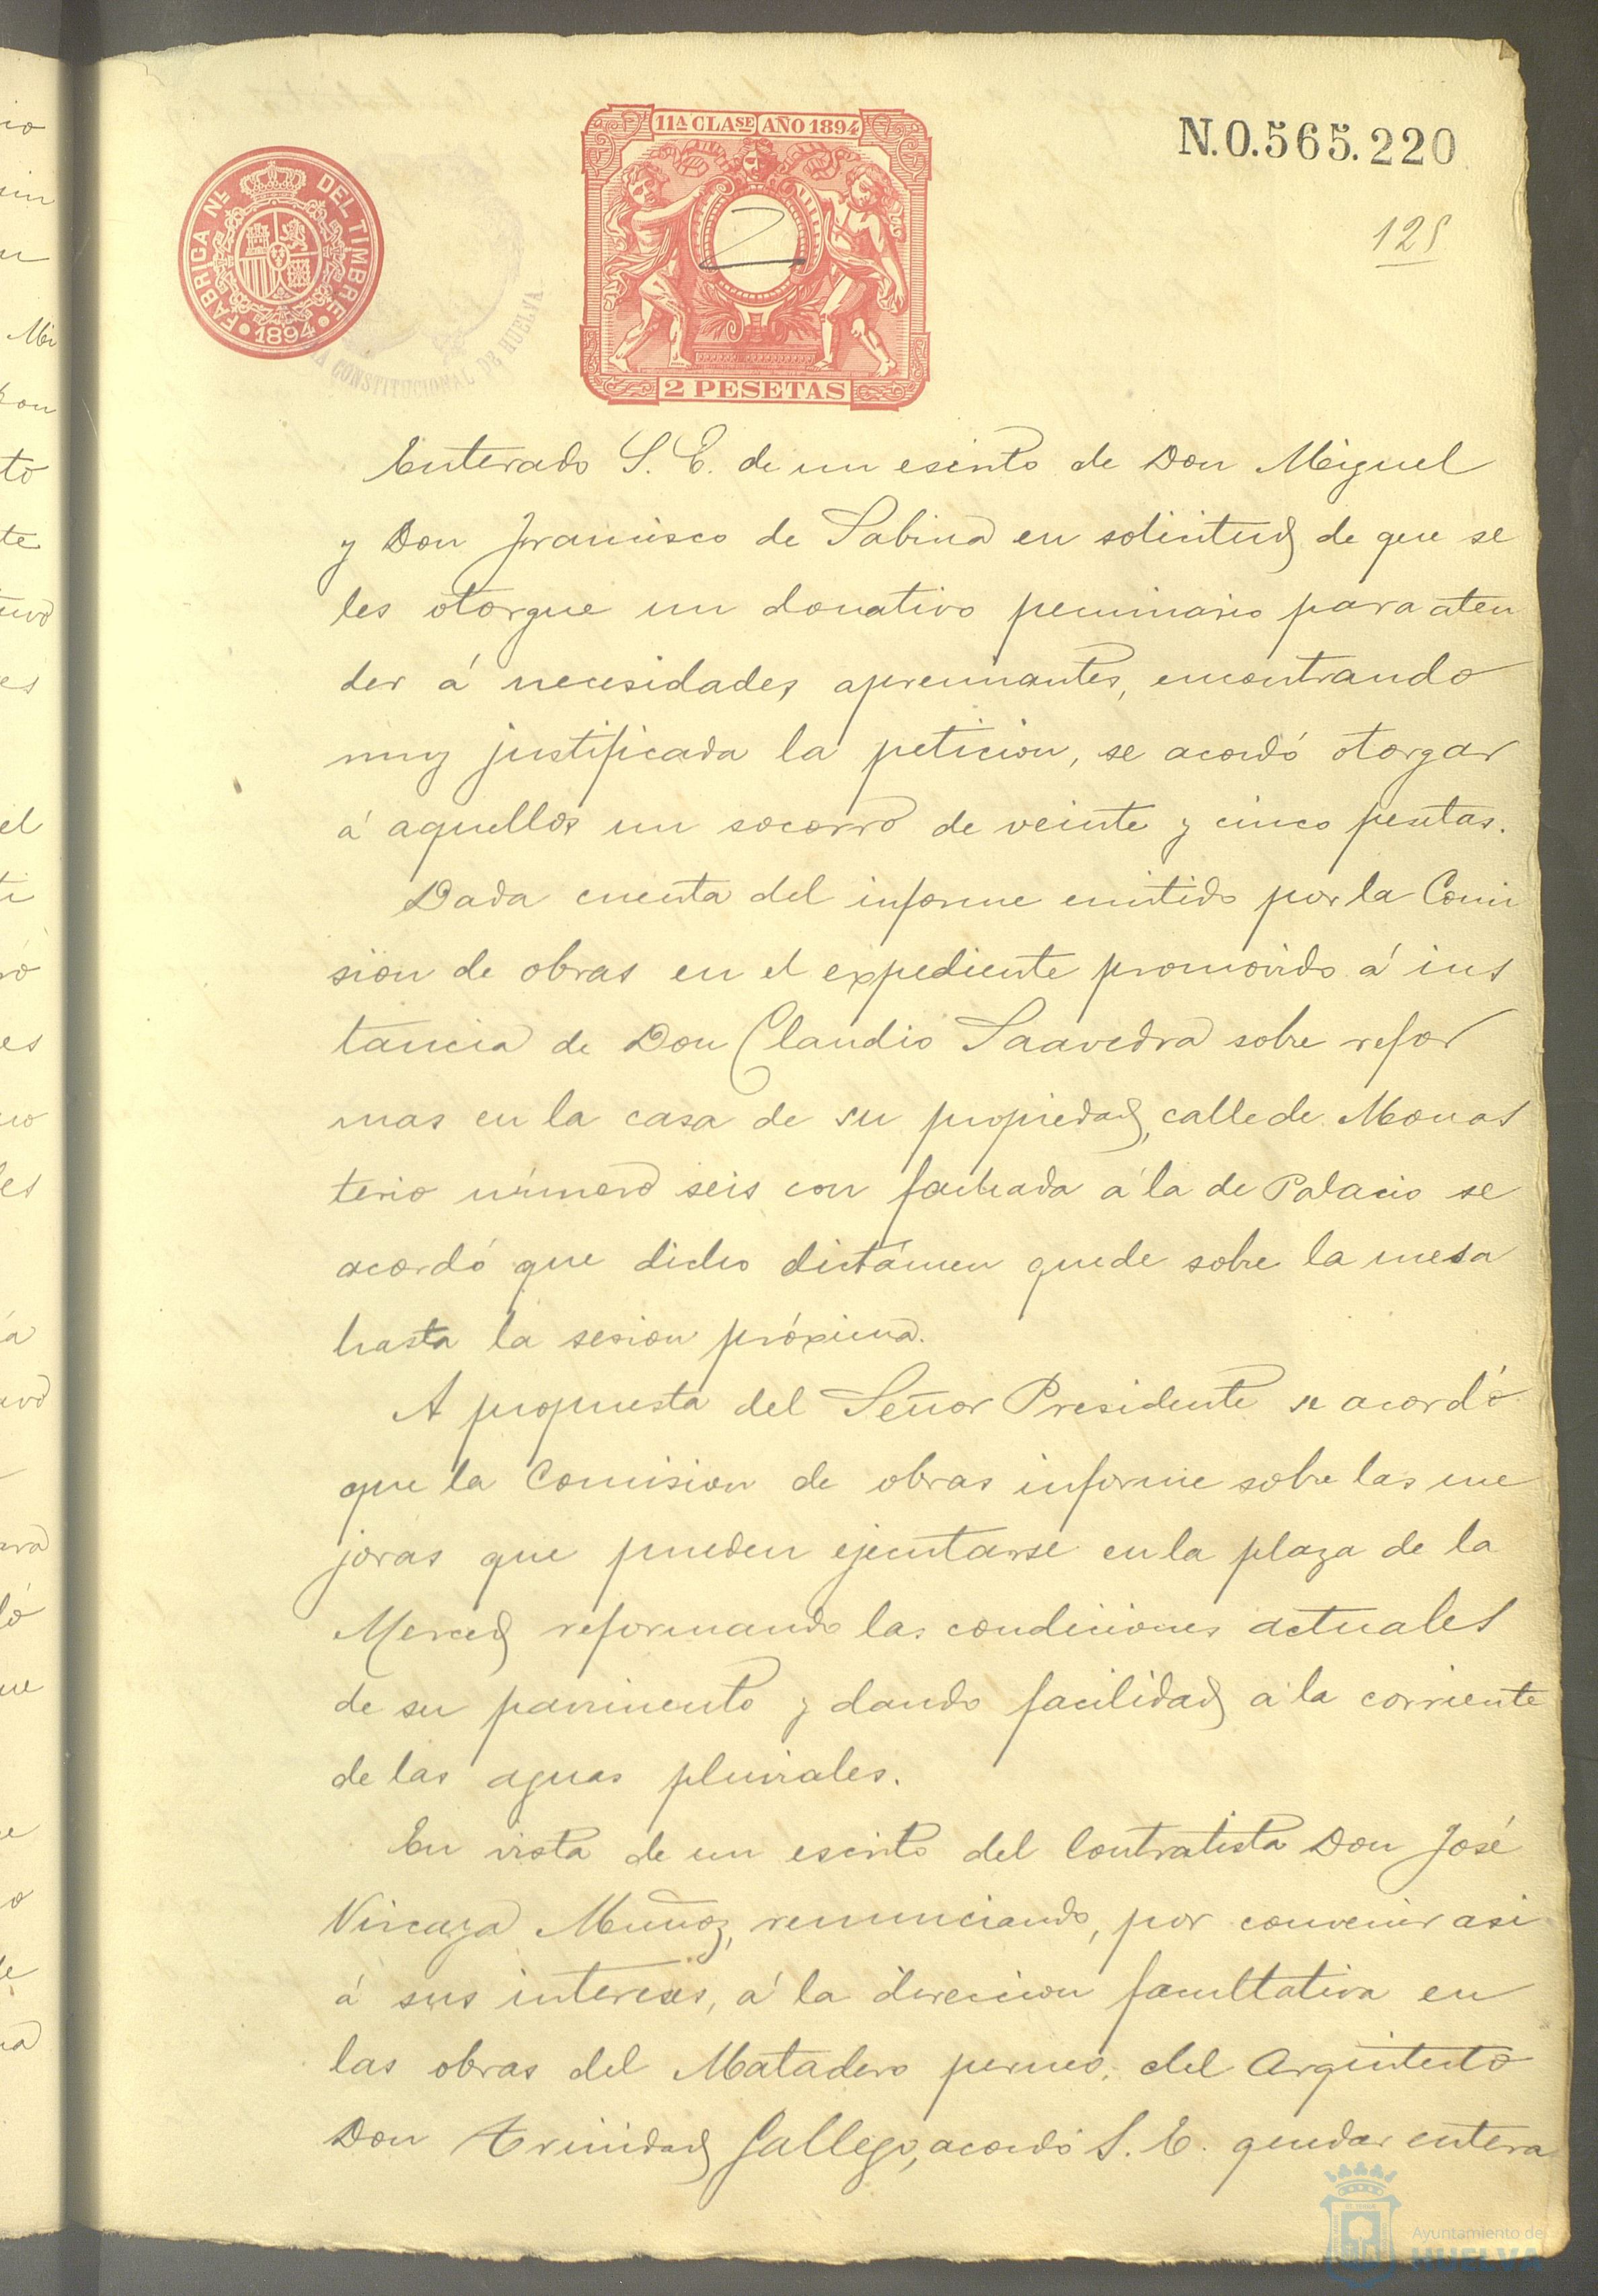 11ª CLASE AÑO 1894
N.0.565.220
125
FABRICA NL DEL TIMBRE
1894
CONSTITUCIONAL DE HUELVA
2 PESETAS
Enterado S. E. de un escrito de Don Miguel
y Don Francisco de Sabina en solicitud de que se
les otorgue un donativo pecuniario para aten
der á necesidades apremiantes, encontrando
muy justificada la peticion, se acordó otorgar
á aquellos un socorro de veinte y cinco pesetas.
Dada cuenta del informe emitido por la Comi
sion de obras en el expediente promovido á ins
tancia de Don Claudio Saavedra sobre refor
mas en la casa de su propiedad, calle de Monas
terio número seis con fachada á la de Palacio se
acordó que dicho dictámen quede sobre la mesa
hasta la sesion próxima.
A propuesta del Señor Presidente se acordó
que la Comision de obras informe sobre las me
joras que pueden ejecutarse en la plaza de la
Merced reformando las condiciones actuales
de su pavimento y dando facilidad á la corriente
de las aguas pluviales.
En vista de un escrito del Contratista Don José
Vizcaya Muñoz, renunciando, por convenir asi
á sus intereses, á la direccion facultativa en
las obras del Matadero del Arquitecto
Don Trinidad Gallego, acordó S. E. quedar entera
Ayuntamiento de
HUELVA